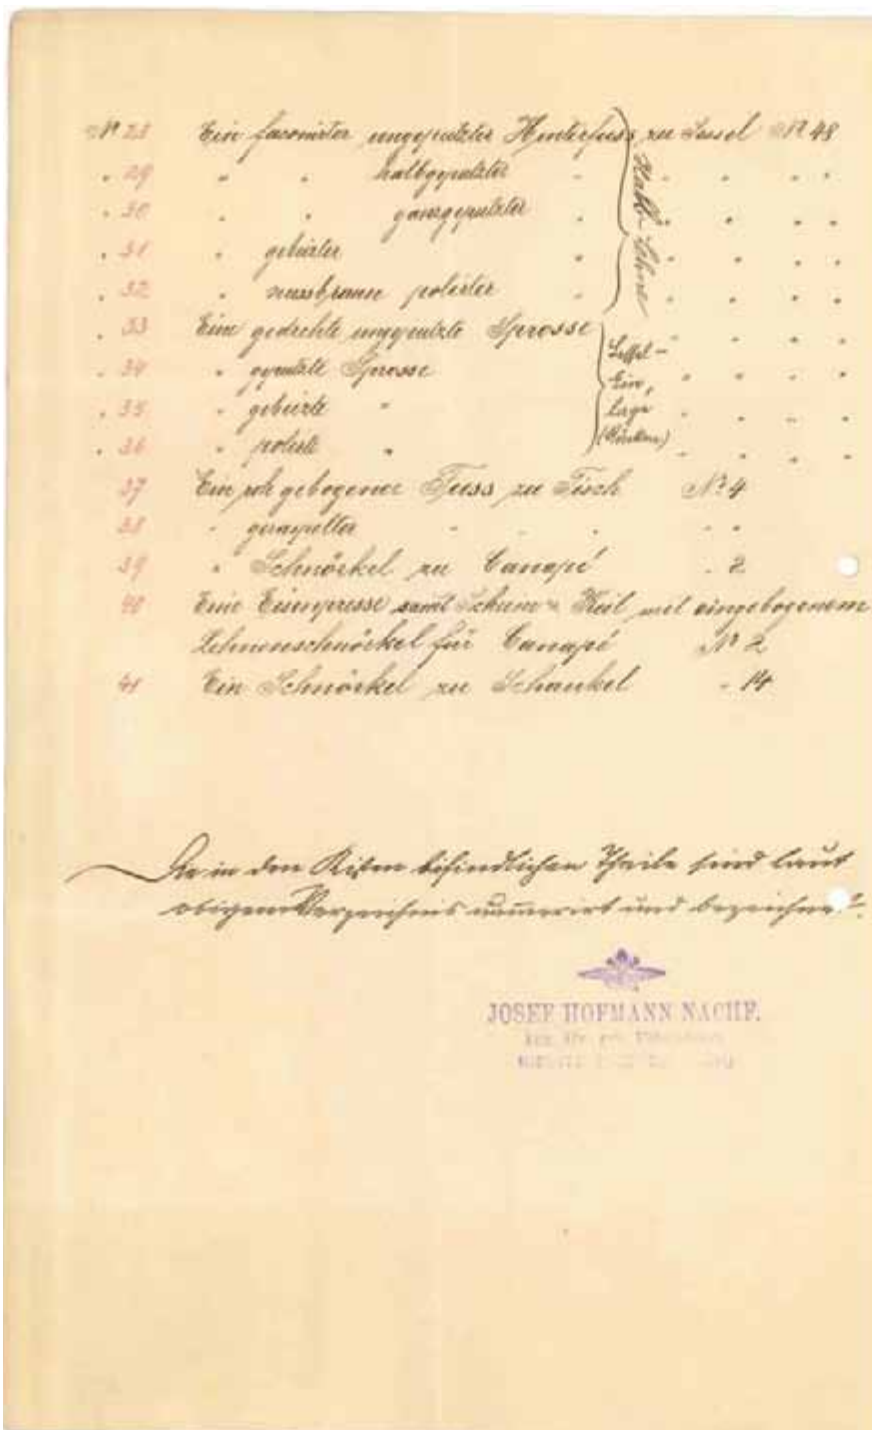 Nº 28 Ein faconirter ungeputzter Hinterfuss zu Sessel Nº 48
" 29 " " halbgeputzter " " " " "
" 30 " " ganzgeputzter " " " " "
" 31 " gebeizter " " " " "
" 32 " nussbraun polirter " " " " "
Halb-Lehne
" 33 Eine gedrehte ungeputzte Sprosse " " " "
" 34 " geputzte Sprosse " " " "
" 35 " gebeizte " " " " "
" 36 " polirte " " " " "
Löffel-
Ein,
lage
(Rücken)
37 Ein roh gebogener Fuss zu Tisch Nº 4
38 " geraspelter " " " " "
39 " Schnörkel zu Canapé " 2
40 Eine Eisenpresse samt Keil mit eingebogenem
Lehnenschnörkel für Canapé Nº 2
41 Ein Schnörkel zu Schaukel " 14
Die in den Kisten befindlichen Theile sind laut
obigem Verzeichnis numerirt und bezeichnet.
JOSEF HOFMANN NACHF.